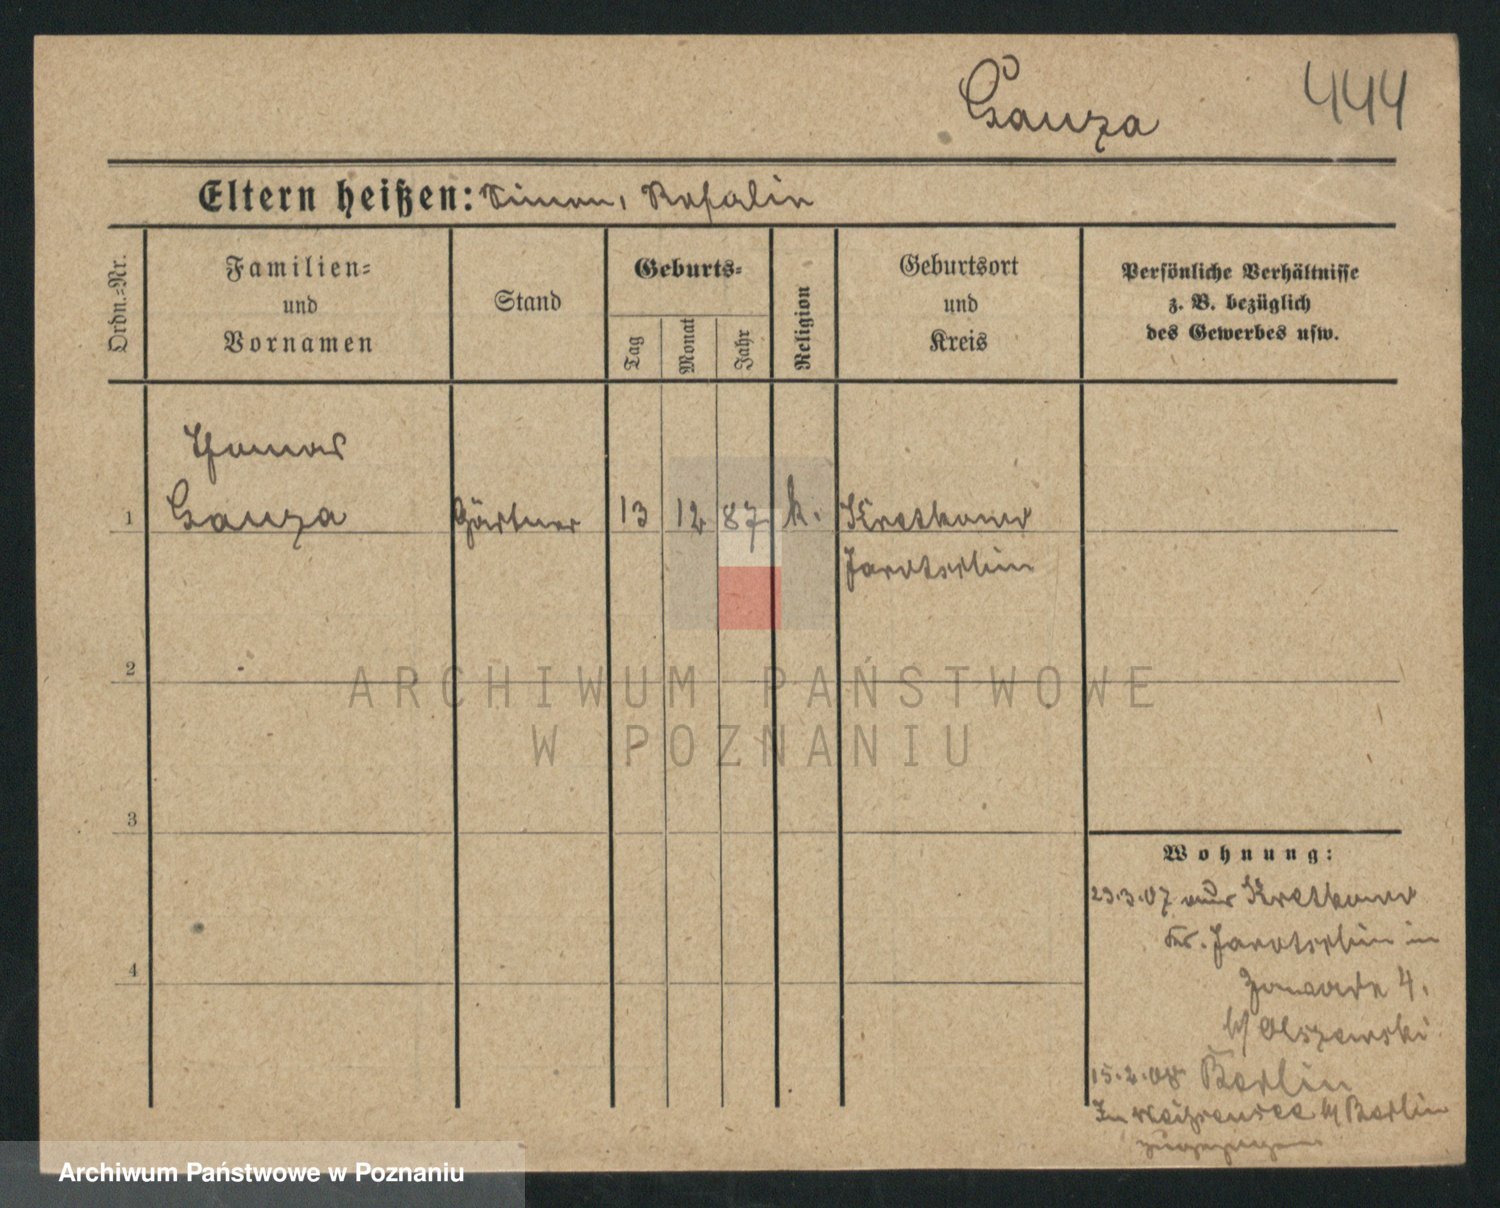 Ganza
444
Eltern heißen: Simon, Rosalie
Ordn.-Nr.
Familien-
und
Vornamen
Stand
Geburts-
Tag
Monat
Jahr
Religion
Geburtsort
und
Kreis
Persönliche Verhältnisse
z. B. bezüglich
des Gewerbes usw.
Thomas
1 Ganza Gärtner 13 12 87 k. Kretkowo
Jarotschin
2
ARCHIWUM PAŃSTWOWE
W POZNANIU
3
Wohnung:
23.3.07 aus Kretkowo
Kr. Jarotschin in
4.
4
b/ Olszewski
15.2.08 Berlin
In Weißensee b/ Berlin
zugezogen
Archiwum Państwowe w Poznaniu